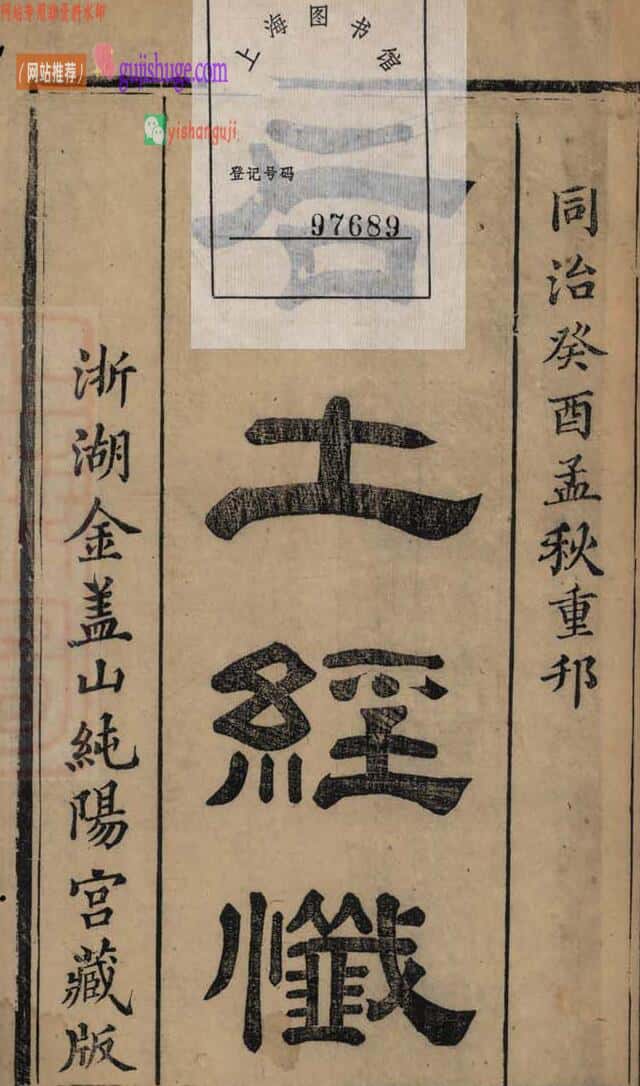 （网站推荐）
gujishuge.com
yishanguji
上海图书馆
登记号码
97689
同治癸酉孟秋重刊
土經懺
浙湖金盖山純陽宮藏版